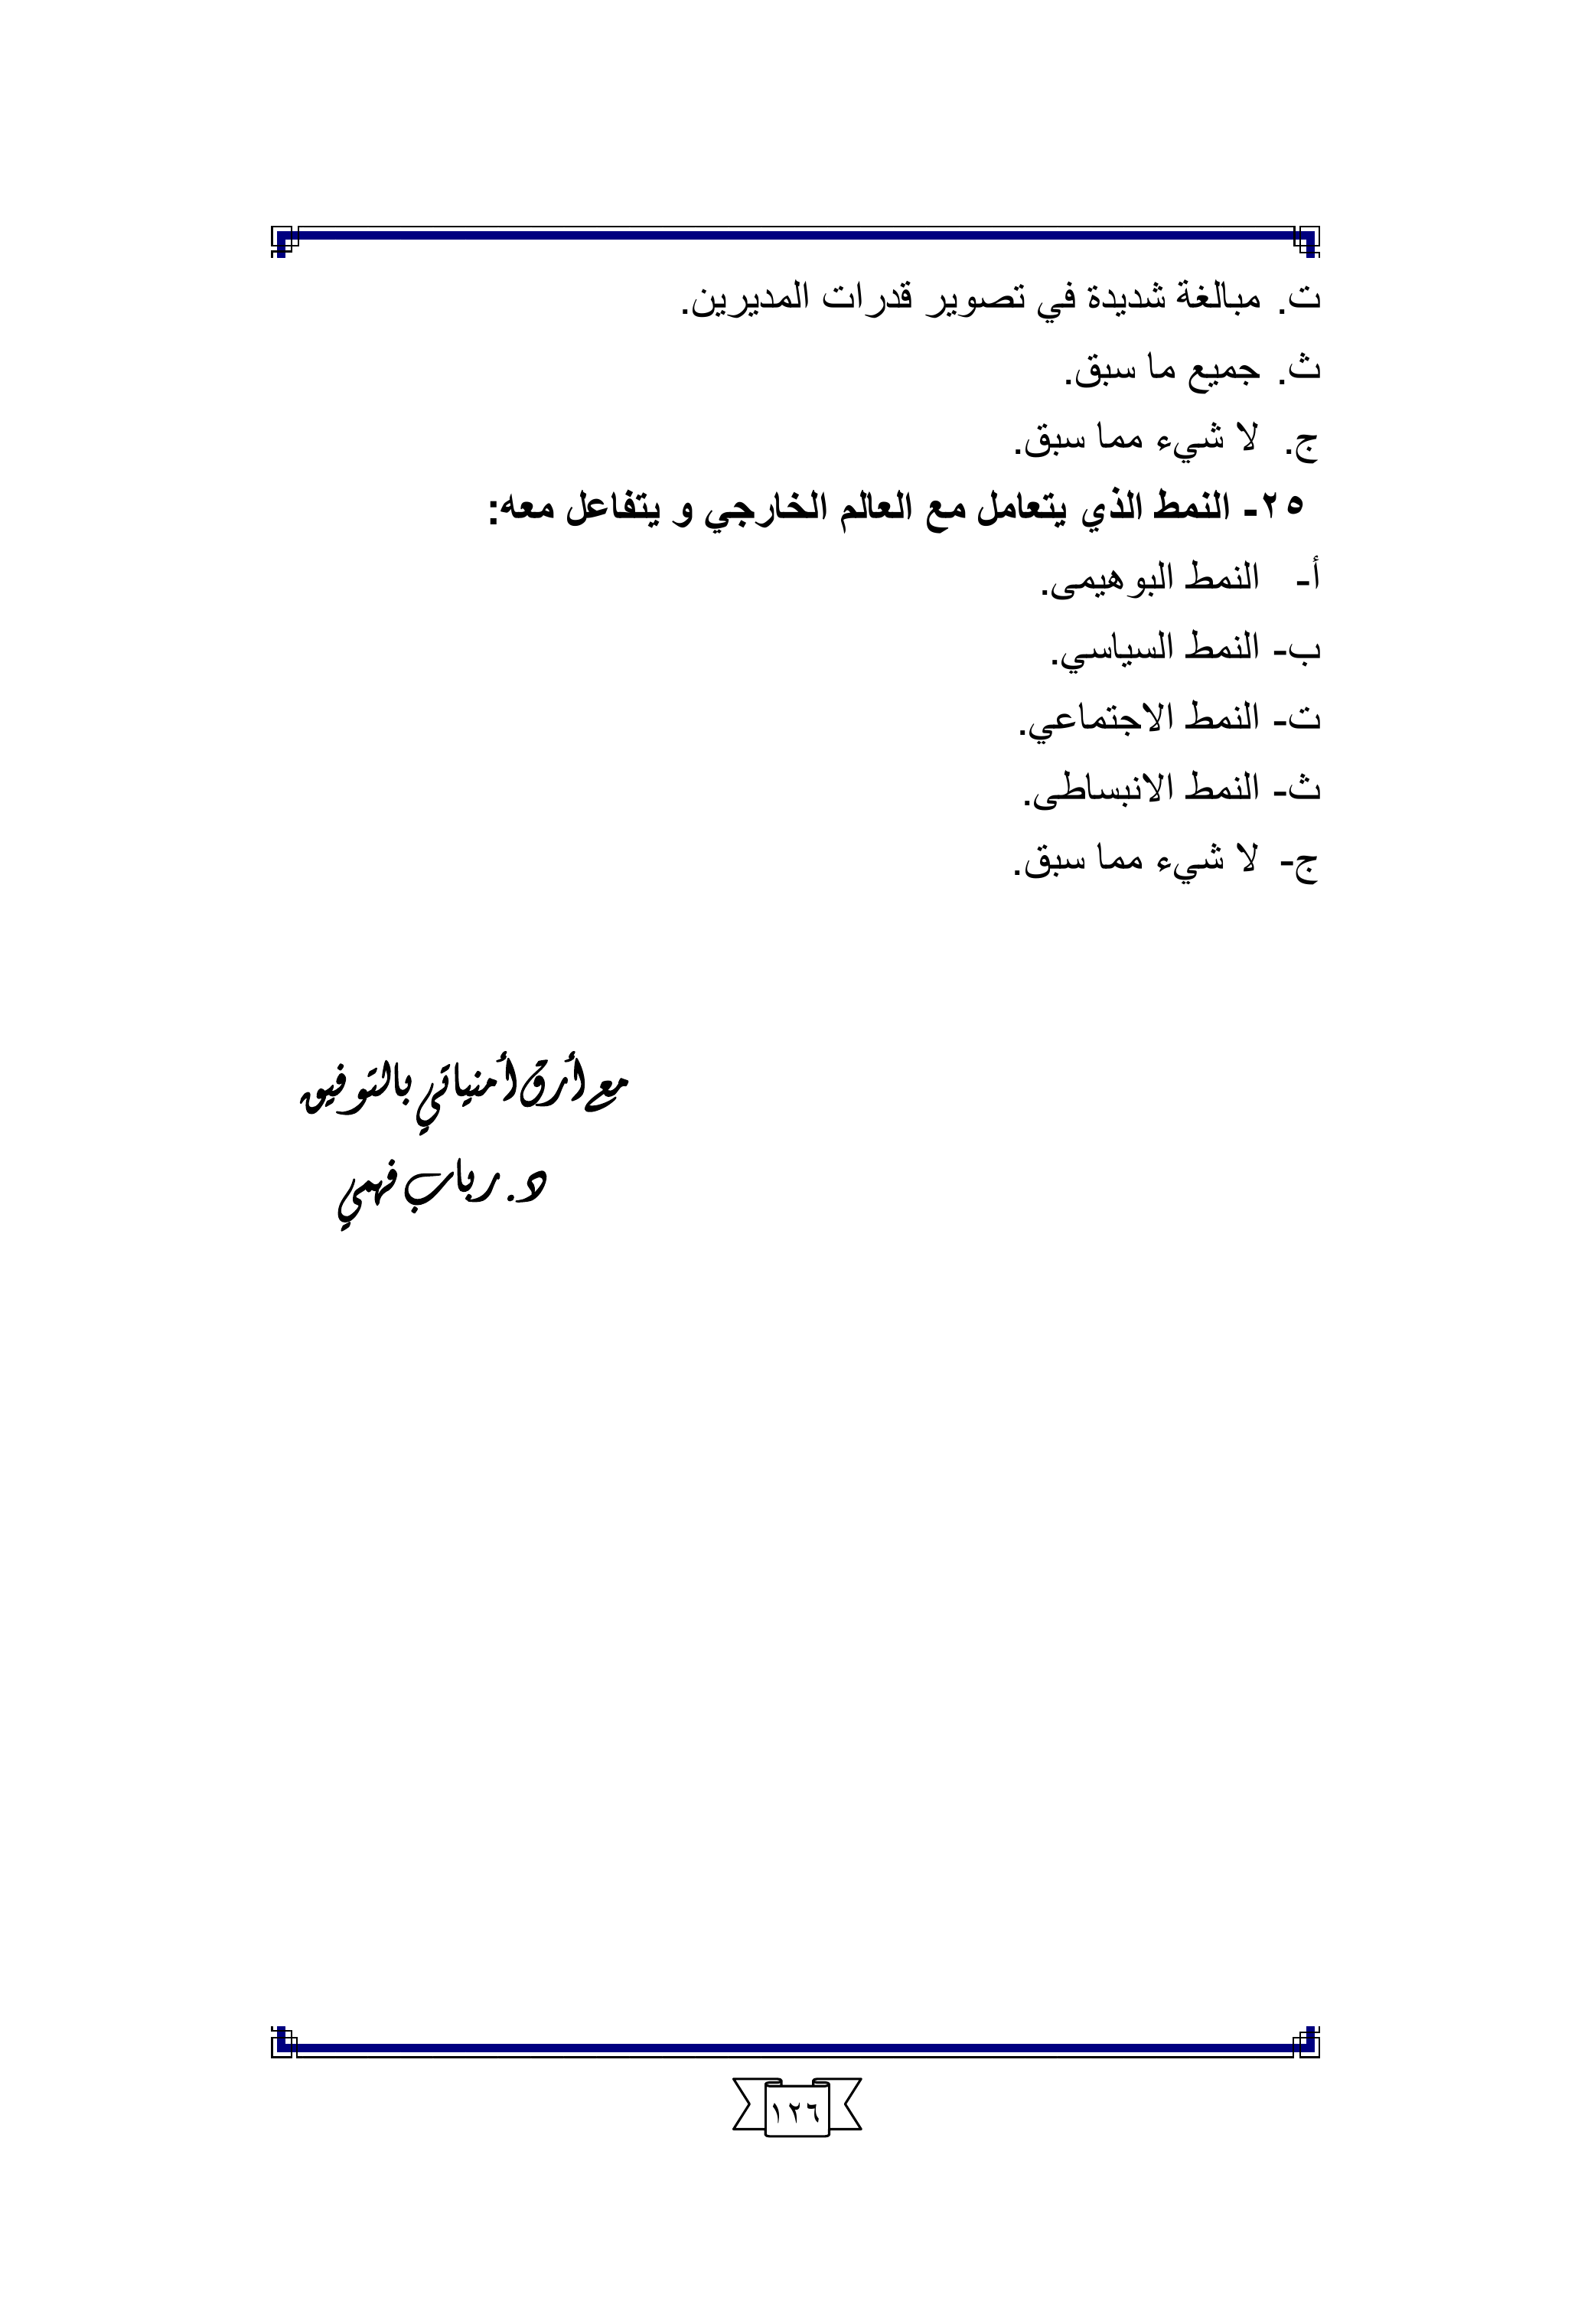 ت. مبالغة شديدة في تصوير قدرات المديرين.
ث. جميع ما سبق.
ج. لا شيء مما سبق.
٢٥- النمط الذي يتعامل مع العالم الخارجي و يتفاعل معه:
أ- النمط البوهيمى.
ب- النمط السياسي.
ت- النمط الاجتماعي.
ث- النمط الانبساطى.
ج- لا شيء مما سبق.
مع أرق أمنياتي بالتوفيق
د. رباب فهمي
١٢٦